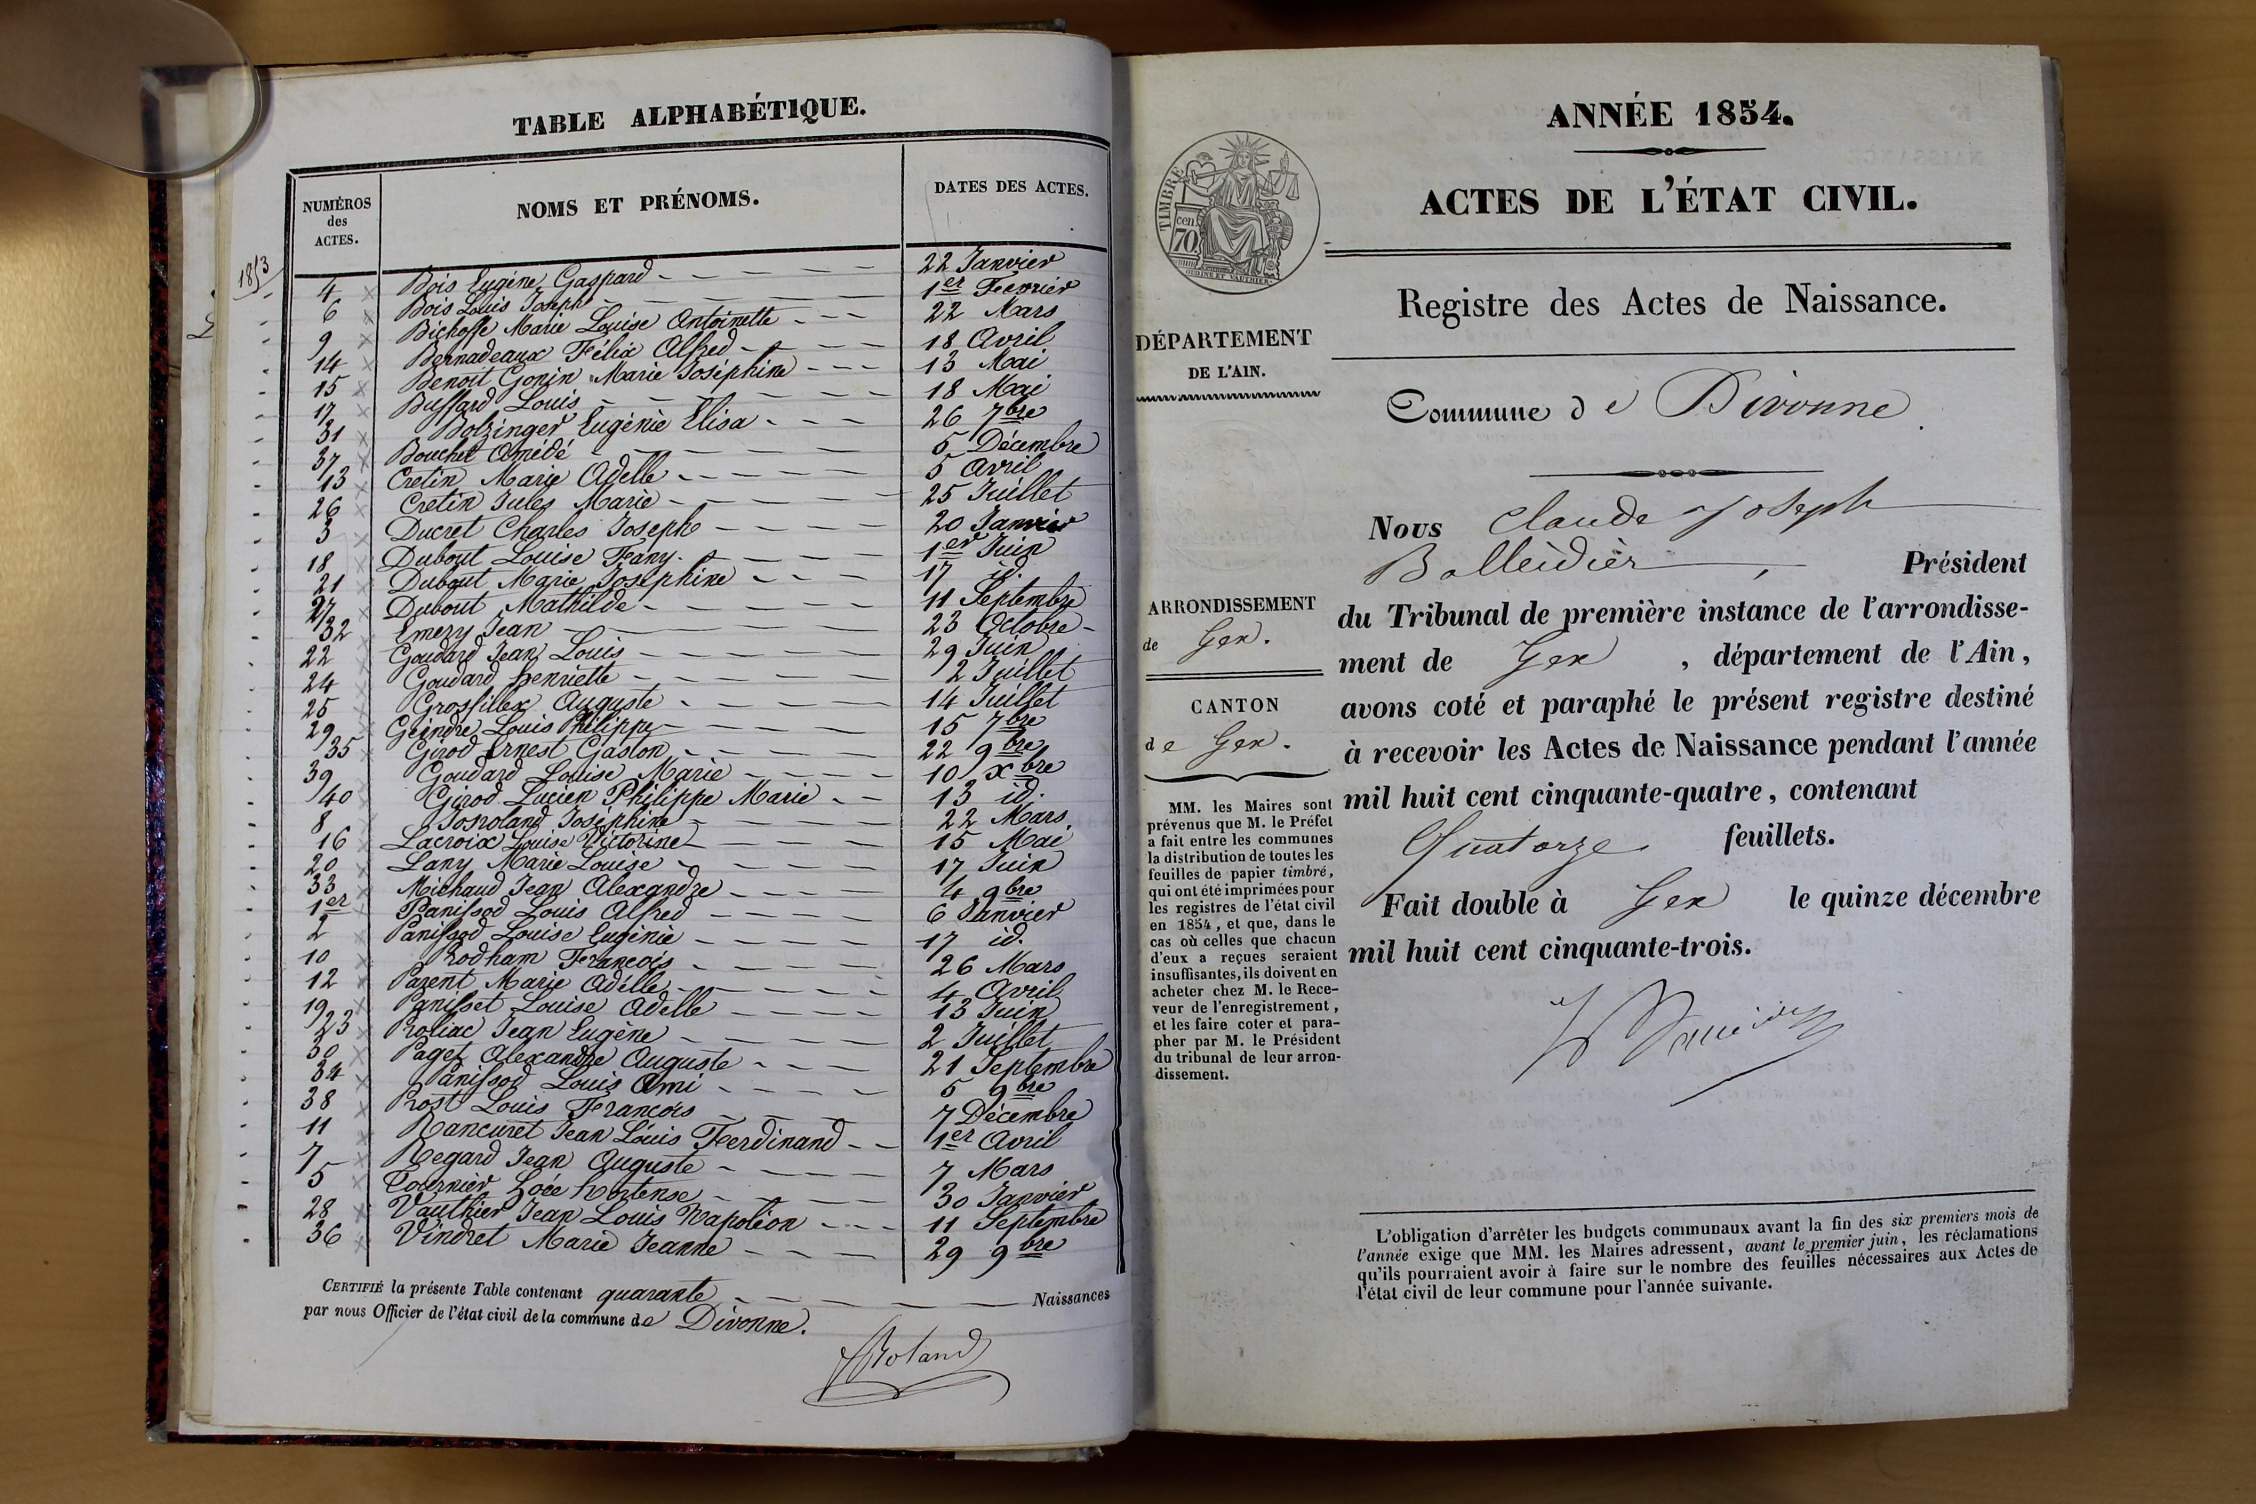 TABLE ALPHABÉTIQUE.
NUMÉROS des ACTES. NOMS ET PRÉNOMS. DATES DES ACTES.
1853
4 Bois Eugène Gaspard 22 Janvier
6 Bois Louis Joseph 1er Fevrier
9 Bichoffe Marie Louise Antoinette 22 Mars
14 Bernadeaux Félix Alfred 18 Avril
15 Benoit Gonin Marie Joséphine 13 Mai
17 Buffard Louis 18 Mai
31 Bolzinger Eugénie Elisa 26 7bre
37 Bouchet Amédé 5 Décembre
13 Cretin Marie Adelle 5 Avril
26 Cretin Jules Marie 25 Juillet
3 Ducret Charles Joseph 20 Janvier
18 Dubout Louise Fany 1er Juin
21 Dubout Marie Joséphine 17 id.
27 Dubout Mathilde 11 Septembre
32 Emery Jean 23 Octobre
22 Goudard Jean Louis 29 Juin
24 Goudard henriette 2 Juillet
25 Grosfillex Auguste 14 Juillet
29 Geindre Louis Philippe 15 7bre
35 Girod Ernest Gaston 22 9bre
39 Goudard Louise Marie 10 xbre
40 Girod Lucien Philippe Marie 13 id.
8 Josephine 22 Mars
16 Lacroix Louise Victorine 15 Mai
20 Lany Marie Louise 17 Juin
33 Michaud Jean Alexandre 4 9bre
1er Panissod Louis Alfred 6 Janvier
2 Panissod Louise Eugénie 17 id.
10 Prodham François 26 Mars
12 Pazent Marie Adélle 4 Avril
19 Panisset Louise Adelle 13 Juin
23 Poliac Jean Eugène 2 Juillet
30 Paget Alexandre Auguste 21 Septembre
34 Panissod Louis Ami 5 9bre
38 Prost Louis François 7 Décembre
11 Rancuret Jean Louis Ferdinand 1er Avril
7 Regard Jean Auguste 7 Mars
5 Tournier Zoée hortense 30 Janvier
28 Vauthier Jean Louis Napoléon 11 Septembre
36 Vindret Marie Jeanne 29 9bre
CERTIFIÉ la présente Table contenant quarante Naissances
par nous Officier de l'état civil de la commune de Divonne.
Roland
ANNÉE 1854.
ACTES DE L'ÉTAT CIVIL.
TIMBRE
70 cen
Registre des Actes de Naissance.
DÉPARTEMENT
DE L'AIN.
Commune de Divonne
Nous Claude Joseph
Balleidier, Président
du Tribunal de première instance de l'arrondisse-
ment de Gex, département de l'Ain,
avons coté et paraphé le présent registre destiné
à recevoir les Actes de Naissance pendant l'année
mil huit cent cinquante-quatre, contenant
Quatorze feuillets.
Fait double à Gex le quinze décembre
mil huit cent cinquante-trois.
ARRONDISSEMENT
de Gex.
CANTON
de Gex.
MM. les Maires sont
prévenus que M. le Préfet
a fait entre les communes
la distribution de toutes les
feuilles de papier timbré,
qui ont été imprimées pour
les registres de l'état civil
en 1854, et que, dans le
cas où celles que chacun
d'eux a reçues seraient
insuffisantes, ils doivent en
acheter chez M. le Rece-
veur de l'enregistrement,
et les faire coter et para-
pher par M. le Président
du tribunal de leur arron-
dissement.
L'obligation d'arrêter les budgets communaux avant la fin des six premiers mois de
l'année exige que MM. les Maires adressent, avant le premier juin, les réclamations
qu'ils pourraient avoir à faire sur le nombre des feuilles nécessaires aux Actes de
l'état civil de leur commune pour l'année suivante.